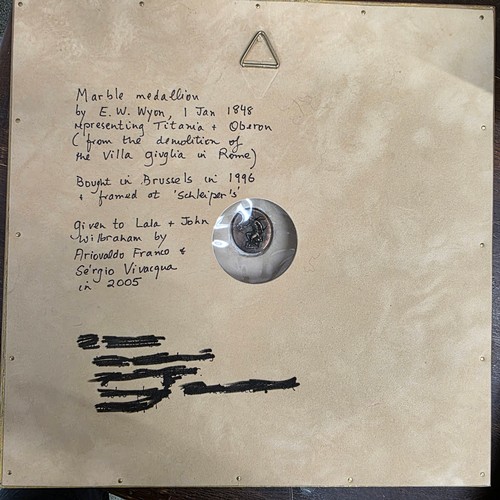 Marble medallion
by E. W. Wyon, 1 Jan 1848
representing Titania + Oberon
(from the demolition of
the Villa giuglia in Rome)
Bought in Brussels in 1996
+ framed at 'Schleiper's'
given to Lala + John
Wilbraham by
Ariovaldo Franco &
Sérgio Vivacqua
in 2005